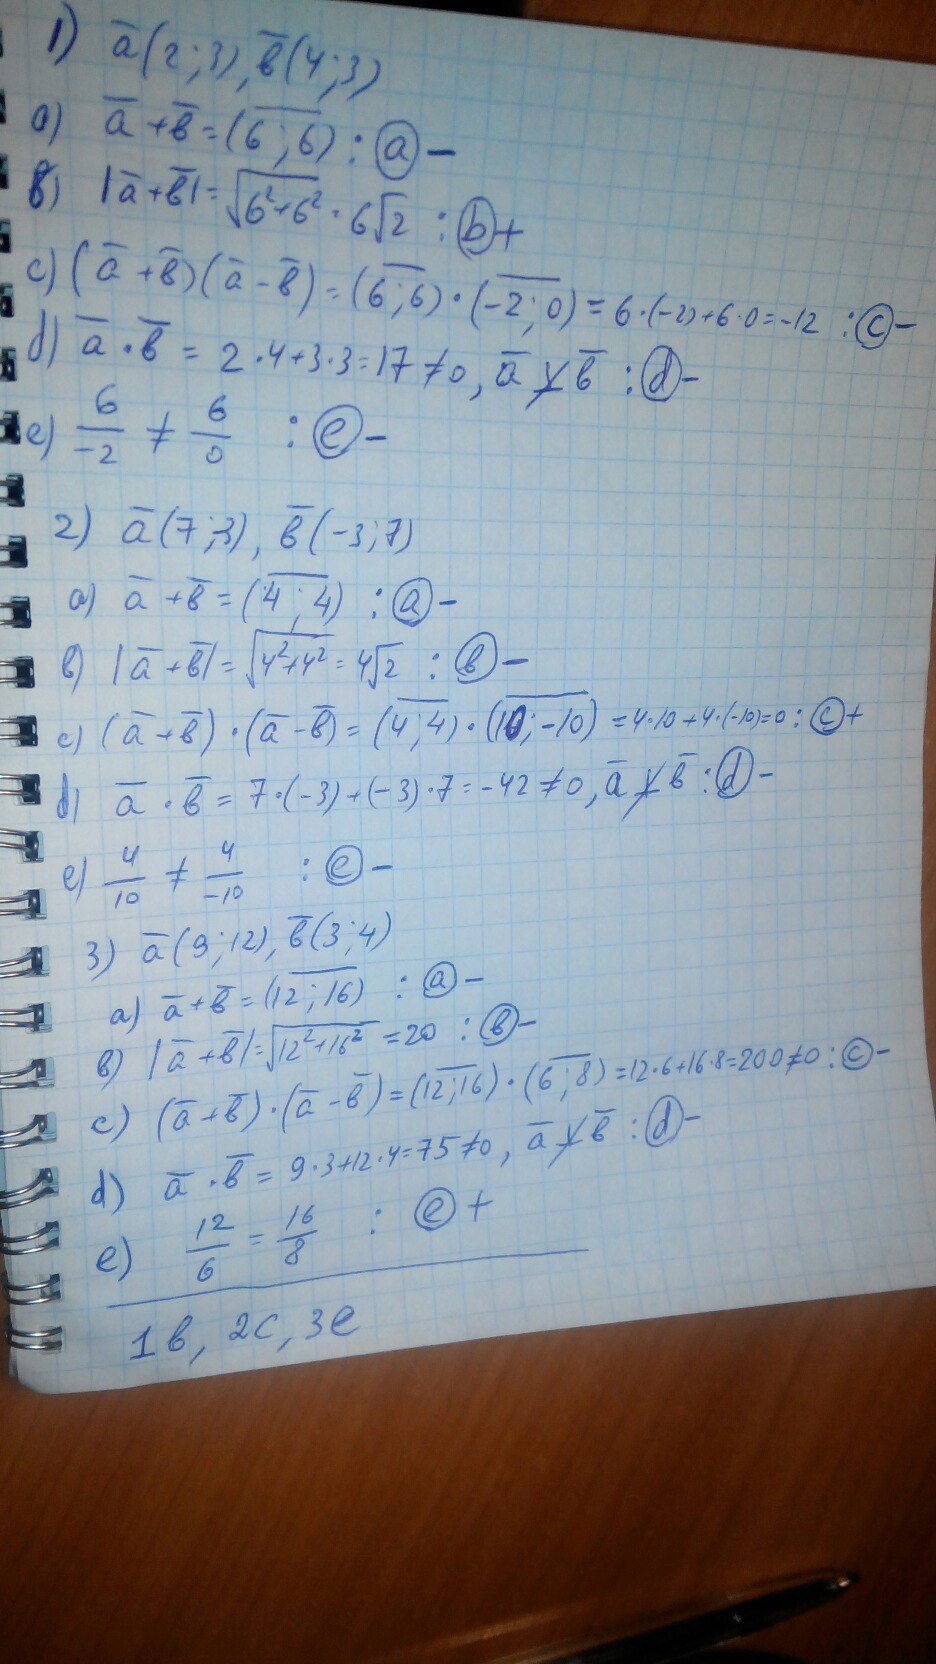 1) a̅(2;3), b̅(4;3)
a) a̅+b̅=(6;6) : ⓐ −
в) |a̅+b̅|=√6²+6²=6√2 : ⓑ +
c) (a̅+b̅)(a̅−b̅)=(6;6)·(−2;0)=6·(−2)+6·0=−12 : ⓒ −
d) a̅·b̅=2·4+3·3=17≠0, a̅ ⊥̸ b̅ : ⓓ −
e) 6/−2 ≠ 6/0 : ⓔ −
2) a̅(7;−3), b̅(−3;7)
a) a̅+b̅=(4;4) : ⓐ −
в) |a̅+b̅|=√4²+4²=4√2 : ⓑ −
c) (a̅+b̅)·(a̅−b̅)=(4;4)·(10;−10)=4·10+4·(−10)=0 : ⓒ +
d) a̅·b̅=7·(−3)+(−3)·7=−42≠0, a̅ ⊥̸ b̅ : ⓓ −
e) 4/10 ≠ 4/−10 : ⓔ −
3) a̅(9;12), b̅(3;4)
a) a̅+b̅=(12;16) : ⓐ −
в) |a̅+b̅|=√12²+16²=20 : ⓑ −
c) (a̅+b̅)·(a̅−b̅)=(12;16)·(6;8)=12·6+16·8=200≠0 : ⓒ −
d) a̅·b̅=9·3+12·4=75≠0, a̅ ⊥̸ b̅ : ⓓ −
e) 12/6=16/8 : ⓔ +
1в, 2c, 3e